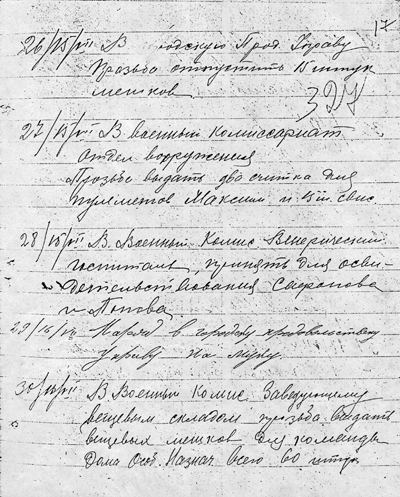 17
26/15/VII В Городскую Прод. Управу
Прозьба отпустить 15 штук
мешков
327
27/15/VII В военный Комиссариат
Отдел вооружения
Прозьба выдать два щитка для
пулеметов Максим и
28/15/VII В. Военный Комис Венерический
госпиталь, принять для осви-
детельствования Сафонова
и Попова
29/16/VII Наряд в городску продовольствен
Управу на муку.
30/16/VII В Военный Комис Заведующему
вещевым складом прозьба выдать
вещевых мешков для команды
Дома Особ. Назнач всего 60 штук